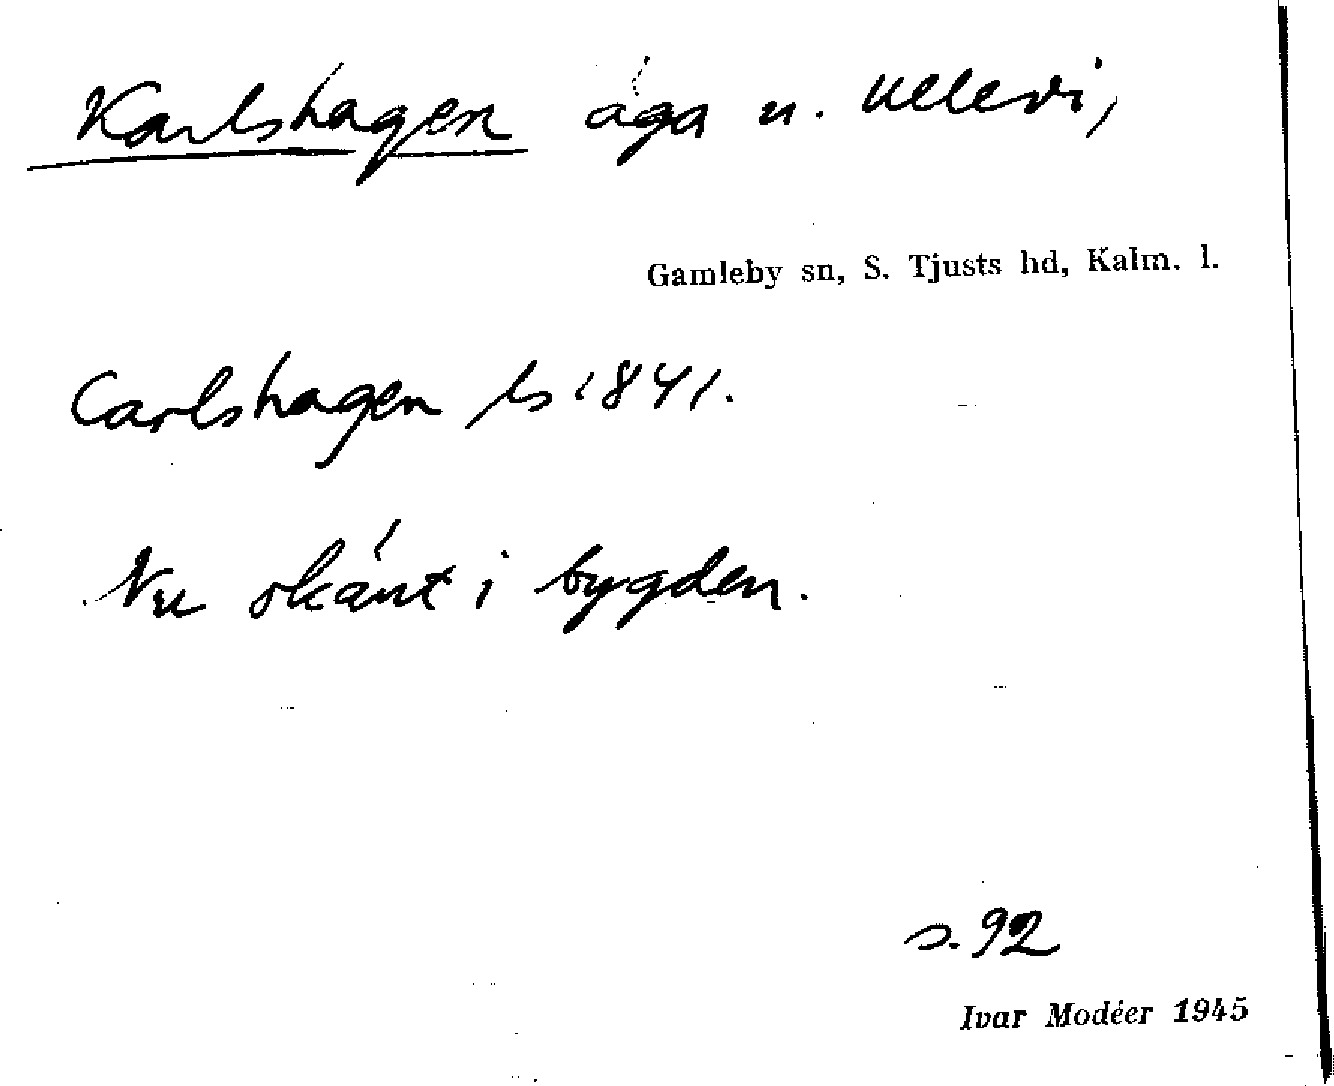 Karlshagen äga u. Ullevi,
Gamleby sn, S. Tjusts hd, Kalm. l.
Carlshagen ls 1841.
Nu okänt i bygden.
s. 92
Ivar Modéer 1945